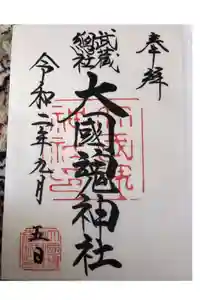 奉拝
武蔵
總社
大國魂神社
令和二年九月
五日